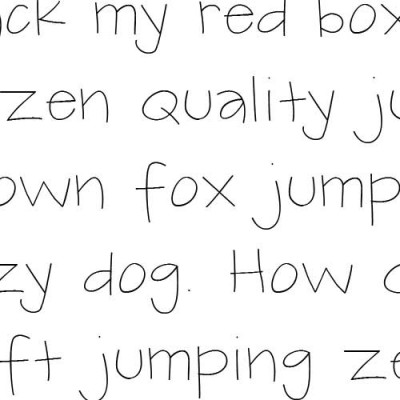 ck my red box
zen quality ju
own fox jump
zy dog. How
ft jumping ze